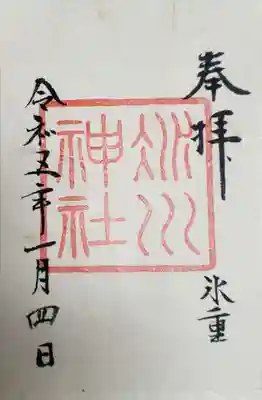 奉拝
氷重
氷川
神社
令和五年一月四日